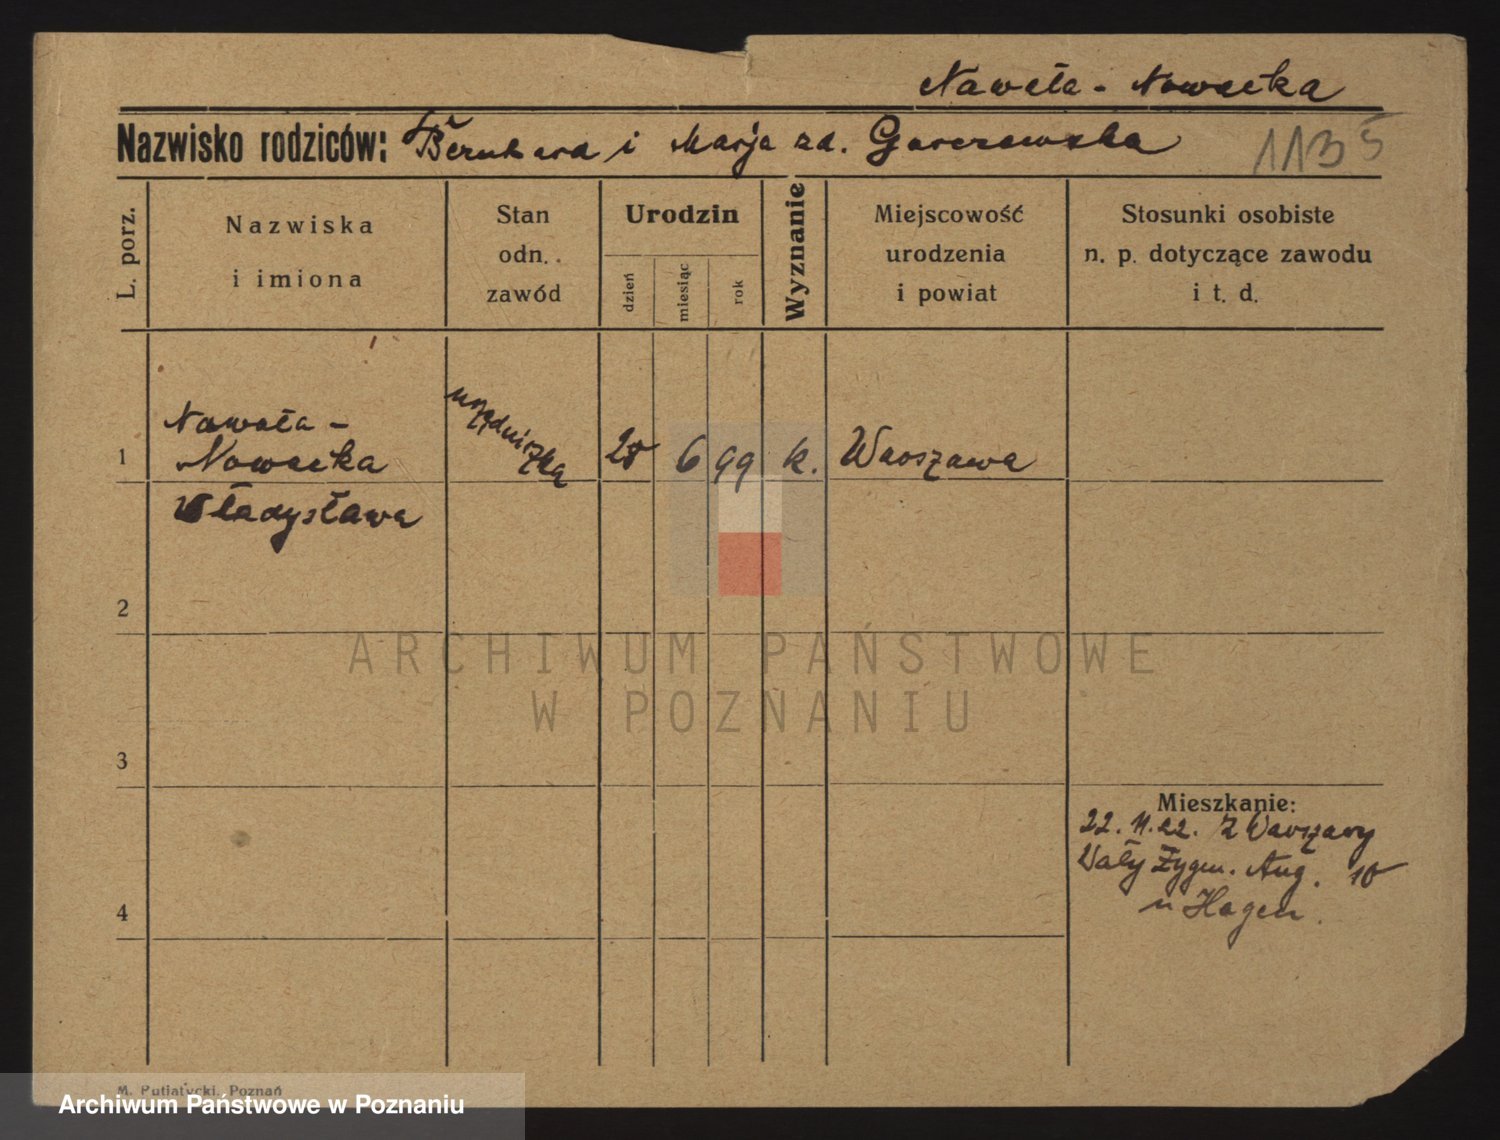 Nawała - Nowacka
Nazwisko rodziców: Bernhard i Marja zd. Garczewska 1135
L. porz.
Nazwiska
i imiona
Stan
odn.
zawód
Urodzin
dzień
miesiąc
rok
Wyznanie
Miejscowość
urodzenia
i powiat
Stosunki osobiste
n. p. dotyczące zawodu
i t. d.
Nawała -
1 Nowacka urzędniczka 28 6 99 k. Warszawa
Władysława
2
ARCHIWUM PAŃSTWOWE
W POZNANIU
3
Mieszkanie:
22. 11. 22. Z Warszawy
Wały Zygm. Aug. 10
u Hagen.
4
M. Putiatycki, Poznań
Archiwum Państwowe w Poznaniu